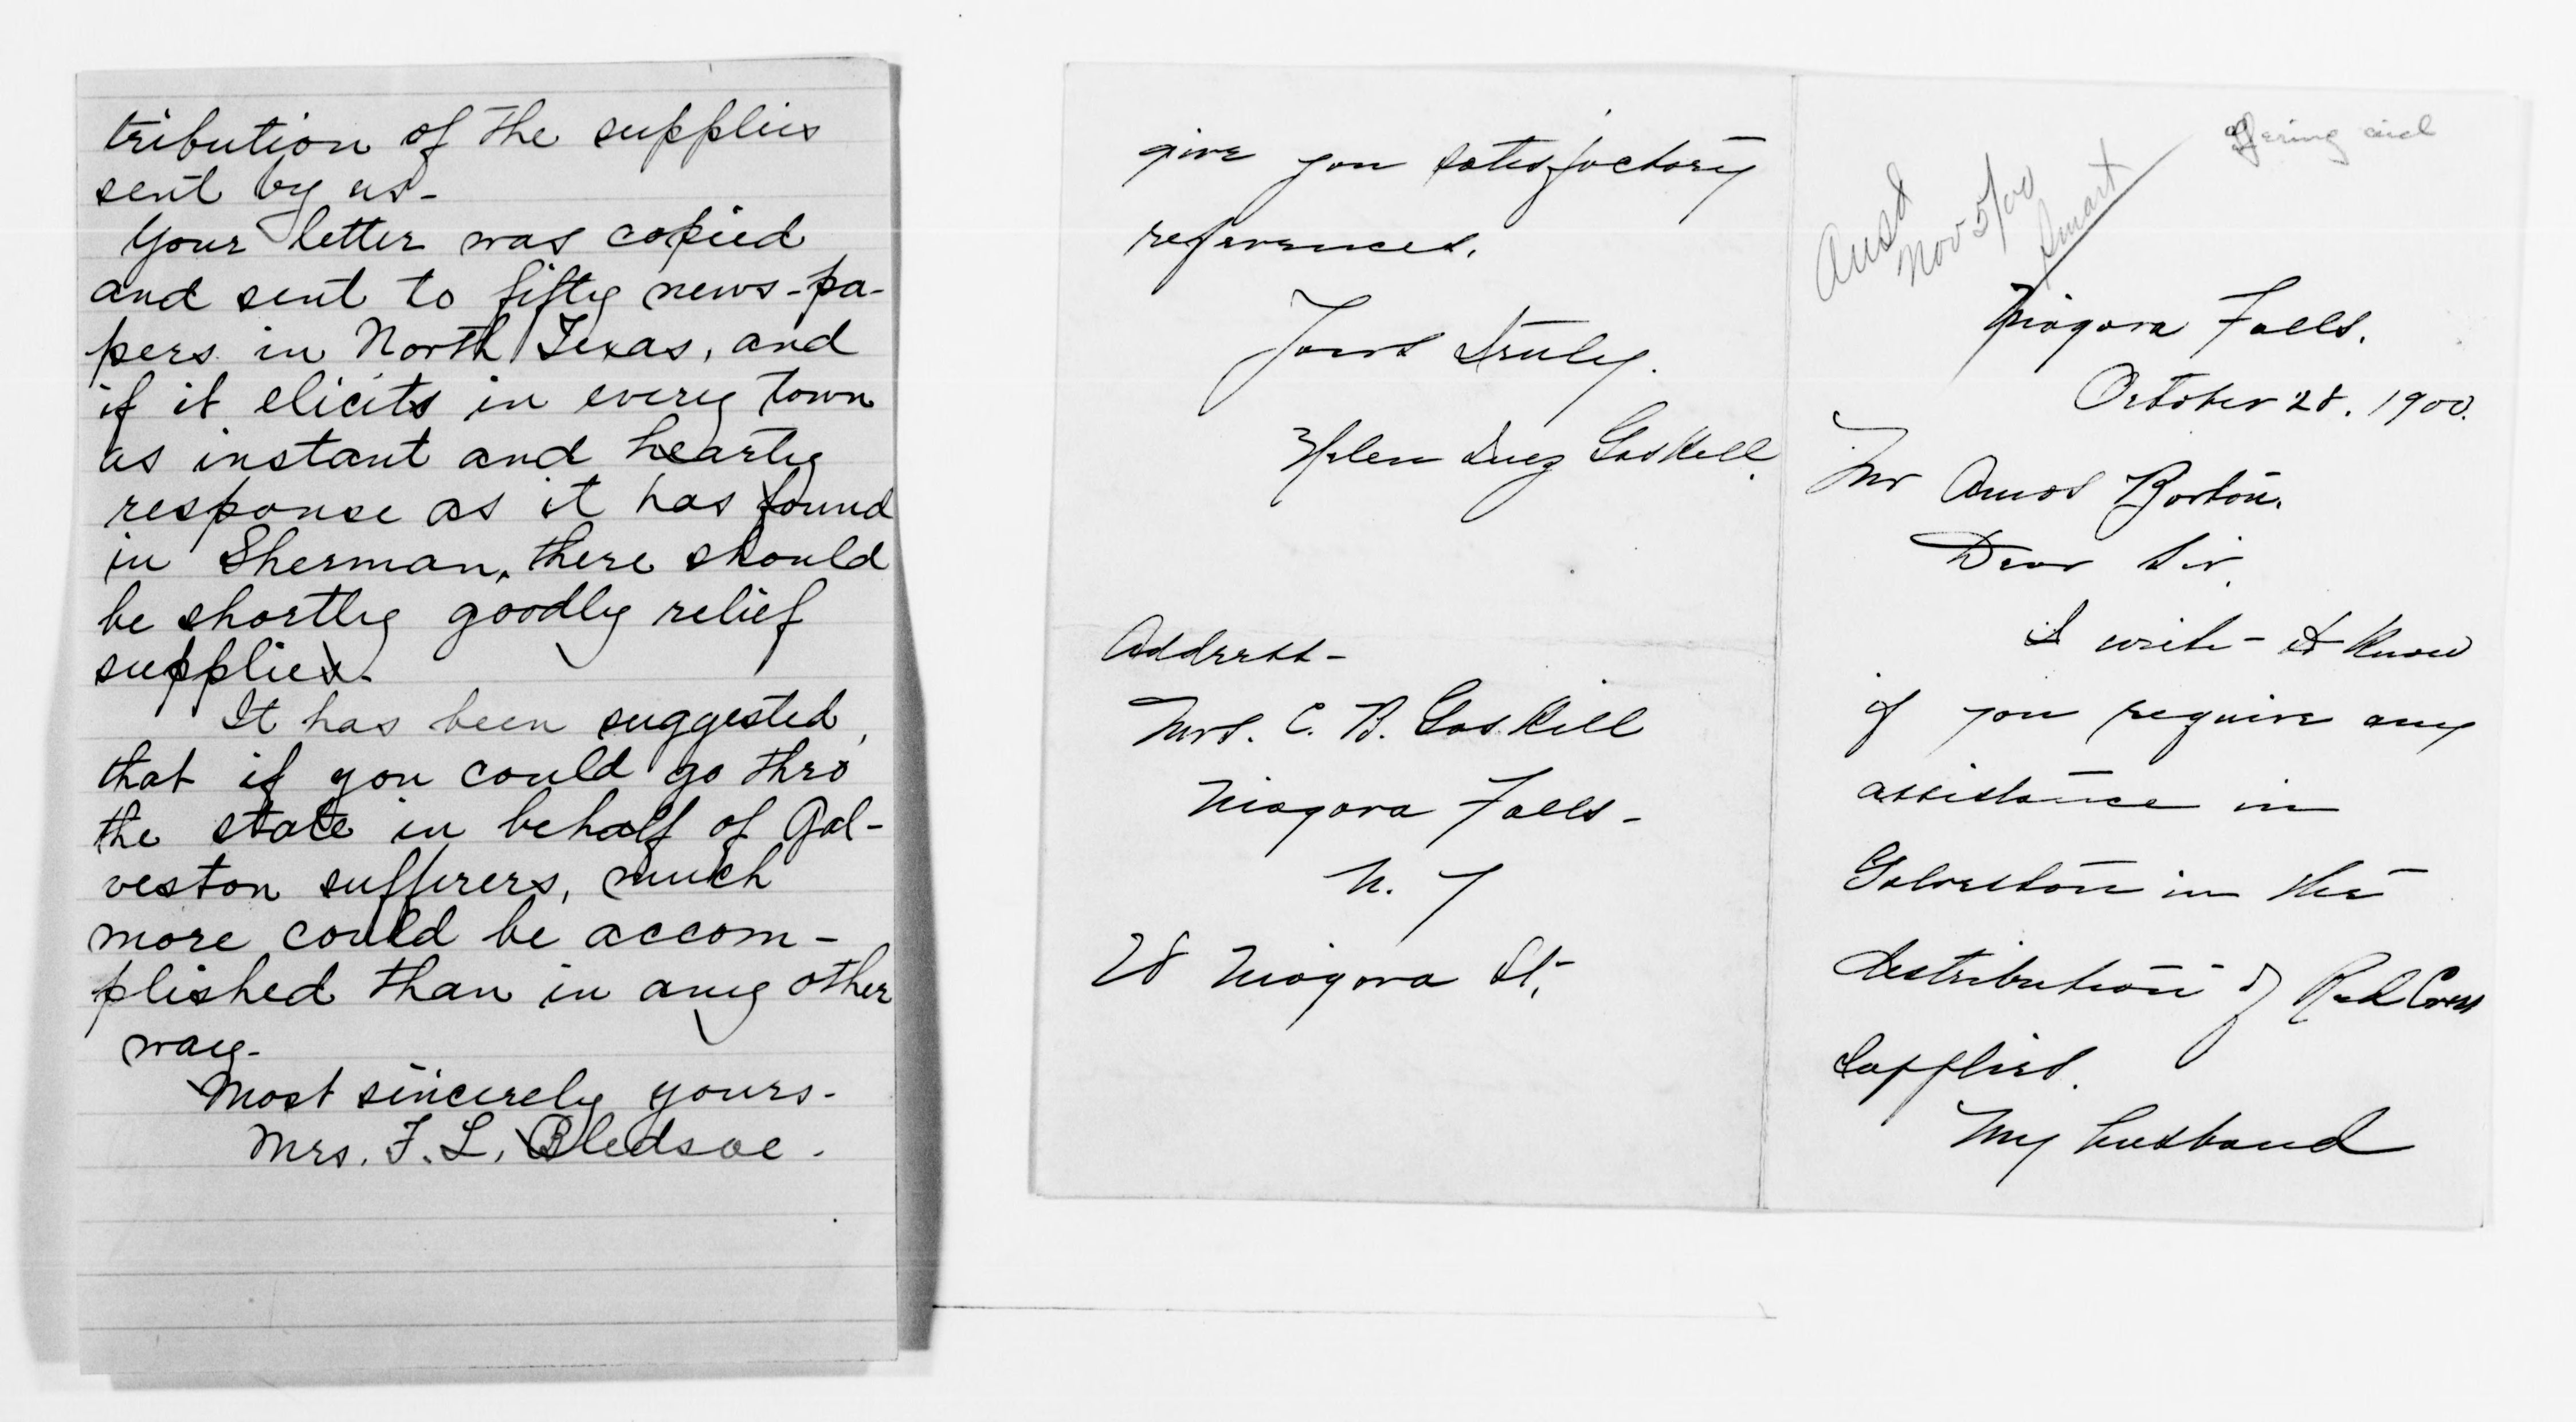 tribution of the supplies
sent by us-
Your letter was copied
and sent to fifty news-pa-
pers in North Texas, and
if it elicits in every town
as instant and hearty
response as it has found
in Sherman, there should
be shortly goodly relief
supplies.
It has been suggested,
that if you could go thro
the state in behalf of Gal-
veston sufferers, much
more could be accom-
plished than in any other
way-
Most sincerely yours-
Mrs. F. L. Bledsoe.
give you satisfactory
references.
Yours Truly.
Helen Gaskill.
Address-
Mrs. C. B. Gaskill
Niagara Falls-
N. Y
28 Niagara St,
Offering aid
Ansd
Nov 5/00
Smart
Niagara Falls.
October 28. 1900.
Mr Amos Barton.
Dear Sir.
I write- to know
if you require any
assistance in
Galveston in the
distribution of Red Cross
Supplies.
My husband